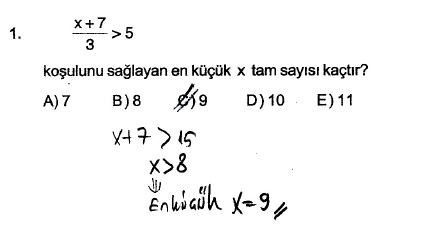 1. x+7/3 > 5
koşulunu sağlayan en küçük x tam sayısı kaçtır?
A) 7 B) 8 C) 9 D) 10 E) 11
x+7 > 15
x>8
⇓
En küçük x=9